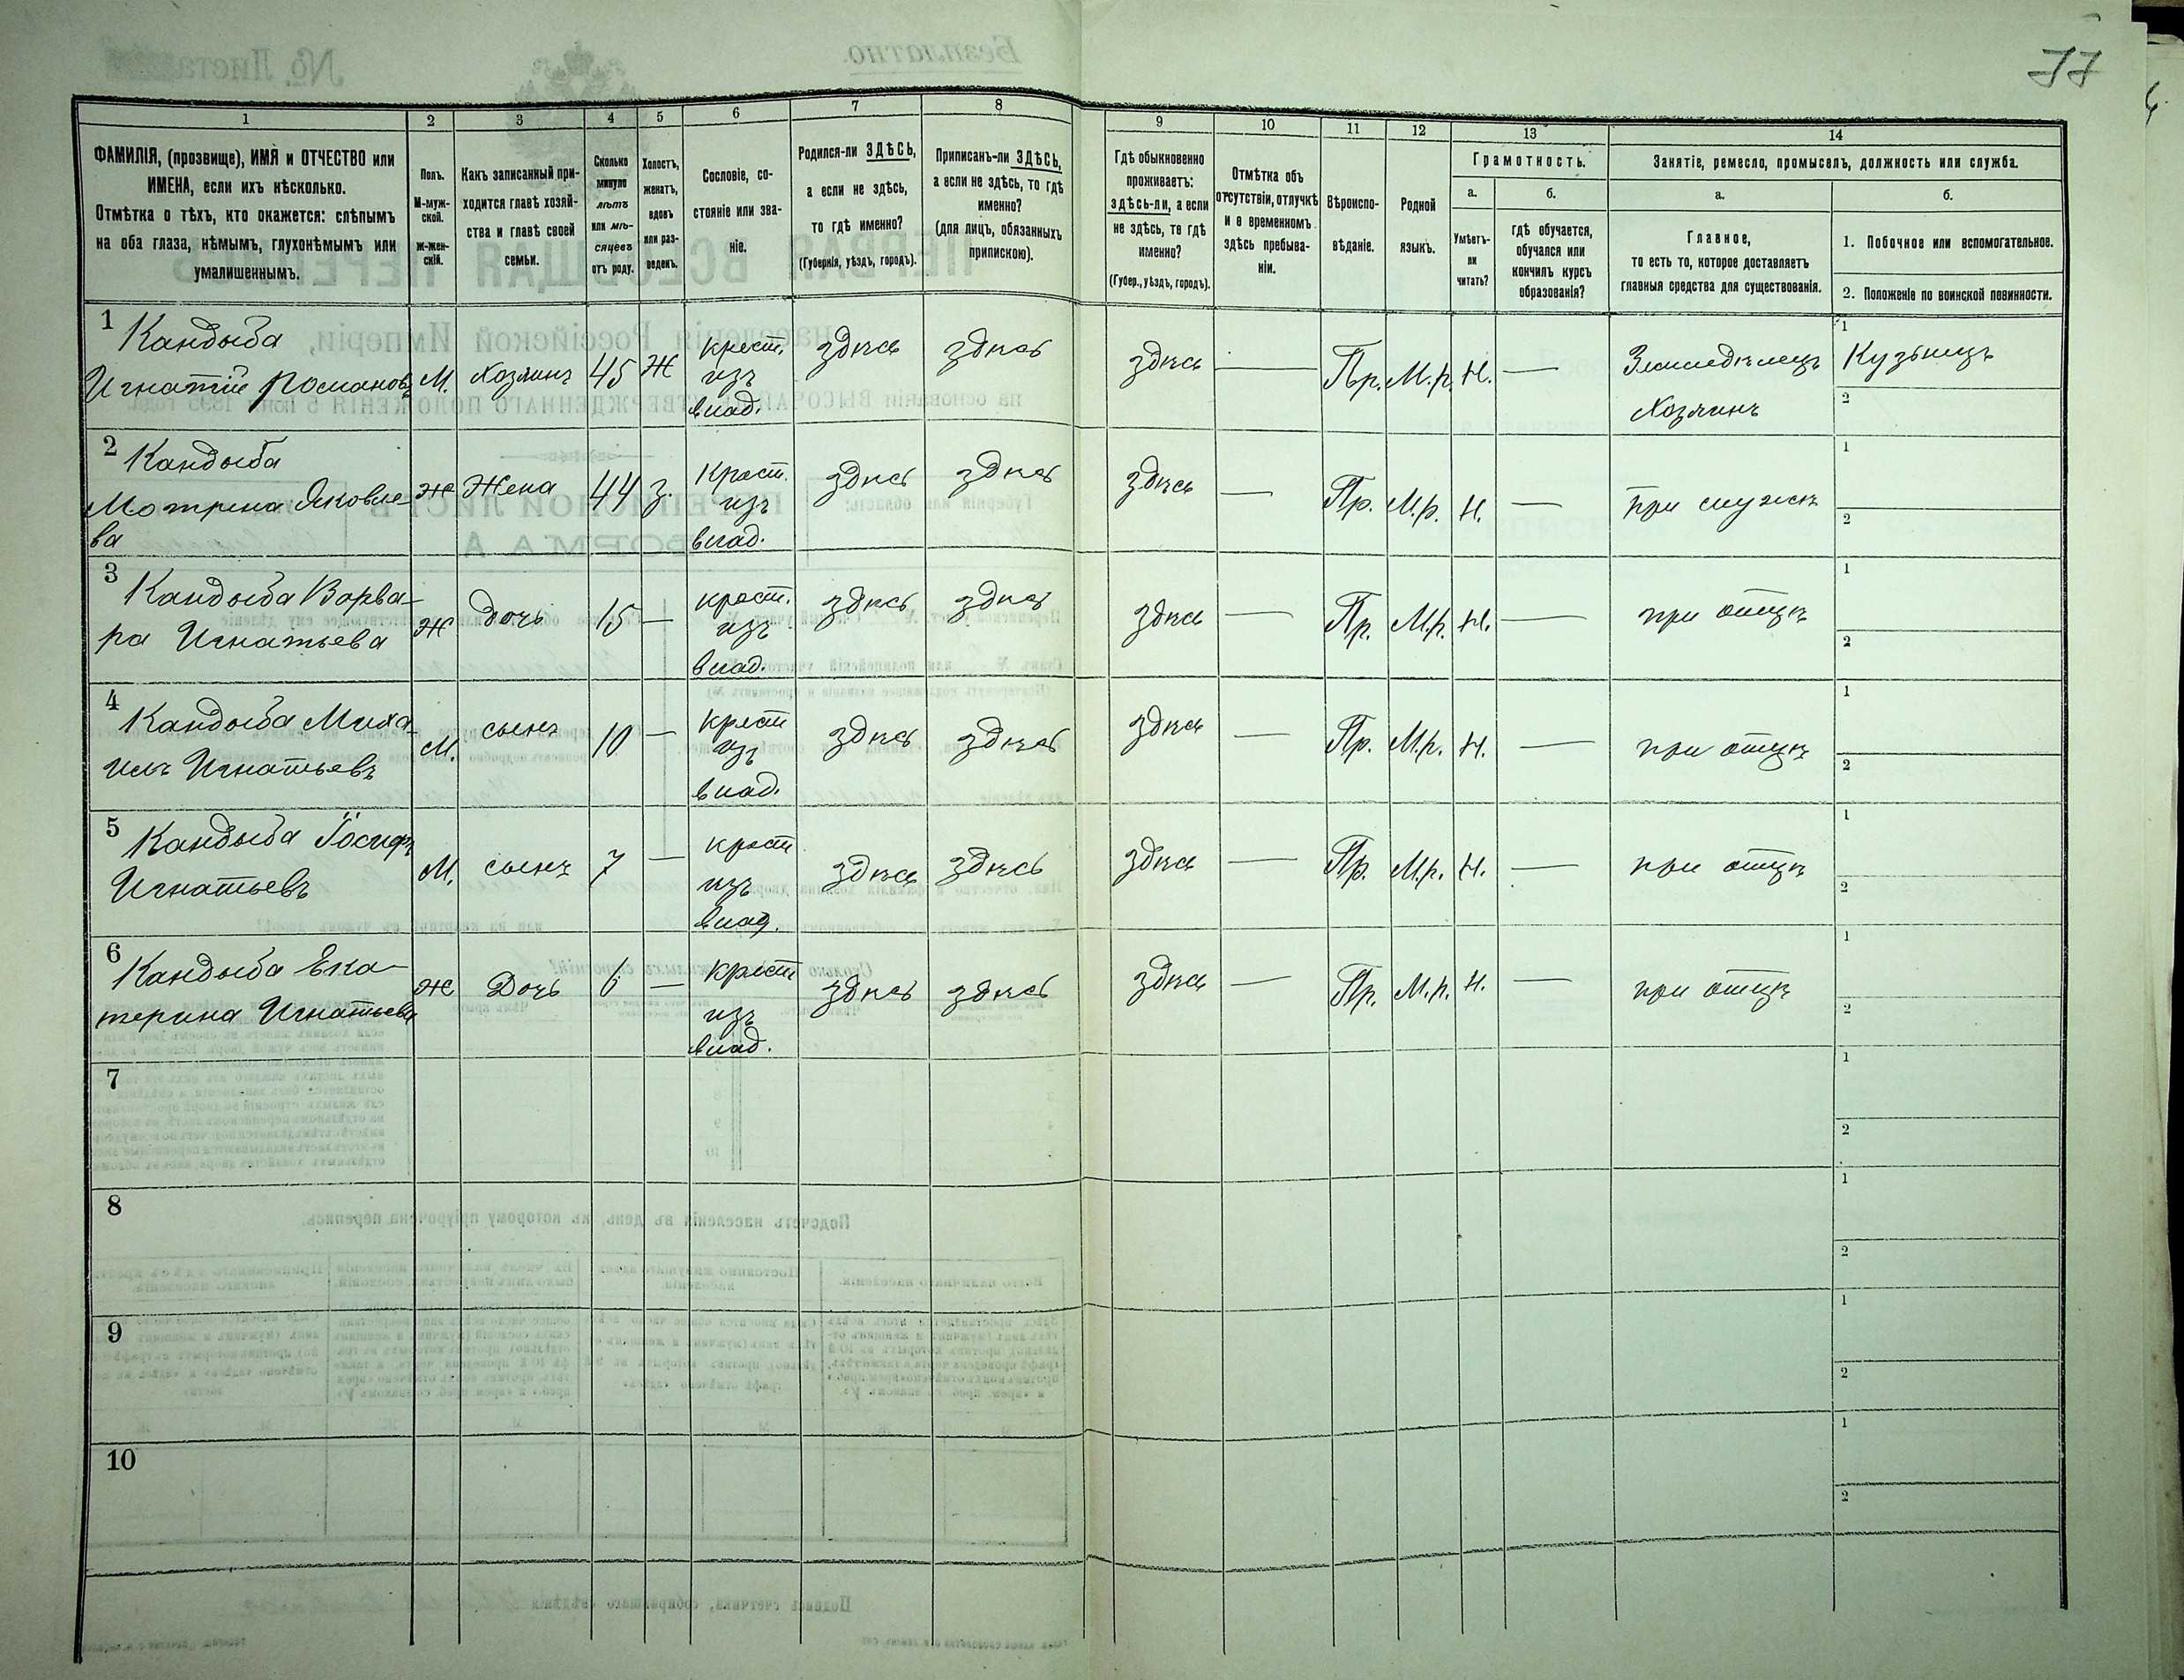 77
1 2 3 4 5 6 7 8 9 10 11 12 13 14
ФАМИЛІЯ, (прозвище), ИМЯ и ОТЧЕСТВО или
ИМЕНА, если ихъ нѣсколько.
Отмѣтка о тѣхъ, кто окажется: слѣпымъ
на оба глаза, нѣмымъ, глухонѣмымъ или
умалишеннымъ.
Полъ.
М-муж-
ской.
ж-жен-
скій.
Какъ записанный при-
ходится главѣ хозяй-
ства и главѣ своей
семьи.
Сколько
минуло
лѣтъ
или мѣ-
сяцевъ
отъ роду.
Холостъ,
женатъ,
вдовъ
или раз-
веденъ.
Сословіе, со-
стояніе или зва-
ніе.
Родился-ли ЗДѢСЬ,
а если не здѣсь,
то гдѣ именно?
(Губернія, уѣздъ, городъ).
Приписанъ-ли ЗДѢСЬ,
а если не здѣсь, то гдѣ
именно?
(для лицъ, обязанныхъ
припискою).
Гдѣ обыкновенно
проживаетъ:
здѣсь-ли, а если
не здѣсь, то гдѣ
именно?
(Губер., уѣздъ, городъ).
Отмѣтка объ
отсутствіи, отлучкѣ
и о временномъ
здѣсь пребыва-
ніи.
Вѣроиспо-
вѣданіе.
Родной
языкъ.
Грамотность.
а.
Умѣетъ-
ли
читать?
б.
гдѣ обучается,
обучался или
кончилъ курсъ
образованія?
Занятіе, ремесло, промыселъ, должность или служба.
а.
Главное,
то есть то, которое доставляетъ
главныя средства для существованія.
б.
1. Побочное или вспомогательное.
2. Положеніе по воинской повинности.
1 Кандыба
Игнатій Романовъ
М.
Хозяинъ
45
Ж
крест.
изъ
влад.
здѣсь
здѣсь
здѣсь
—
Пр.
М.р.
Н.
—
Земледѣлецъ
Хозяинъ
1
Кузнецъ
2
2 Кандыба
Мотрена Яковле-
ва
Ж
Жена
44
З.
Крест.
изъ
влад.
здѣсь
здѣсь
здѣсь
—
Пр.
М.р.
Н.
—
при мужѣ
1
2
3 Кандыба Варва-
ра Игнатьева
Ж
Дочь
15
—
крест.
изъ
влад.
здѣсь
здѣсь
здѣсь
—
Пр.
М.р.
Н.
—
при отцѣ
1
2
4 Кандыба Миха-
илъ Игнатьевъ
М.
сынъ
10
—
крест
изъ
влад.
здѣсь
здѣсь
здѣсь
—
Пр.
М.р.
Н.
—
при отцѣ
1
2
5 Кандыба Іосифъ
Игнатьевъ
М.
сынъ
7
—
крест
изъ
влад.
здѣсь
здѣсь
здѣсь
—
Пр.
М.р.
Н.
—
при отцѣ
1
2
6 Кандыба Ека-
терина Игнатьева
Ж
Дочь
6
—
крест
изъ
влад.
здѣсь
здѣсь
здѣсь
—
Пр.
М.р.
Н.
—
при отцѣ
1
2
7
1
2
8
1
2
9
1
2
10
1
2